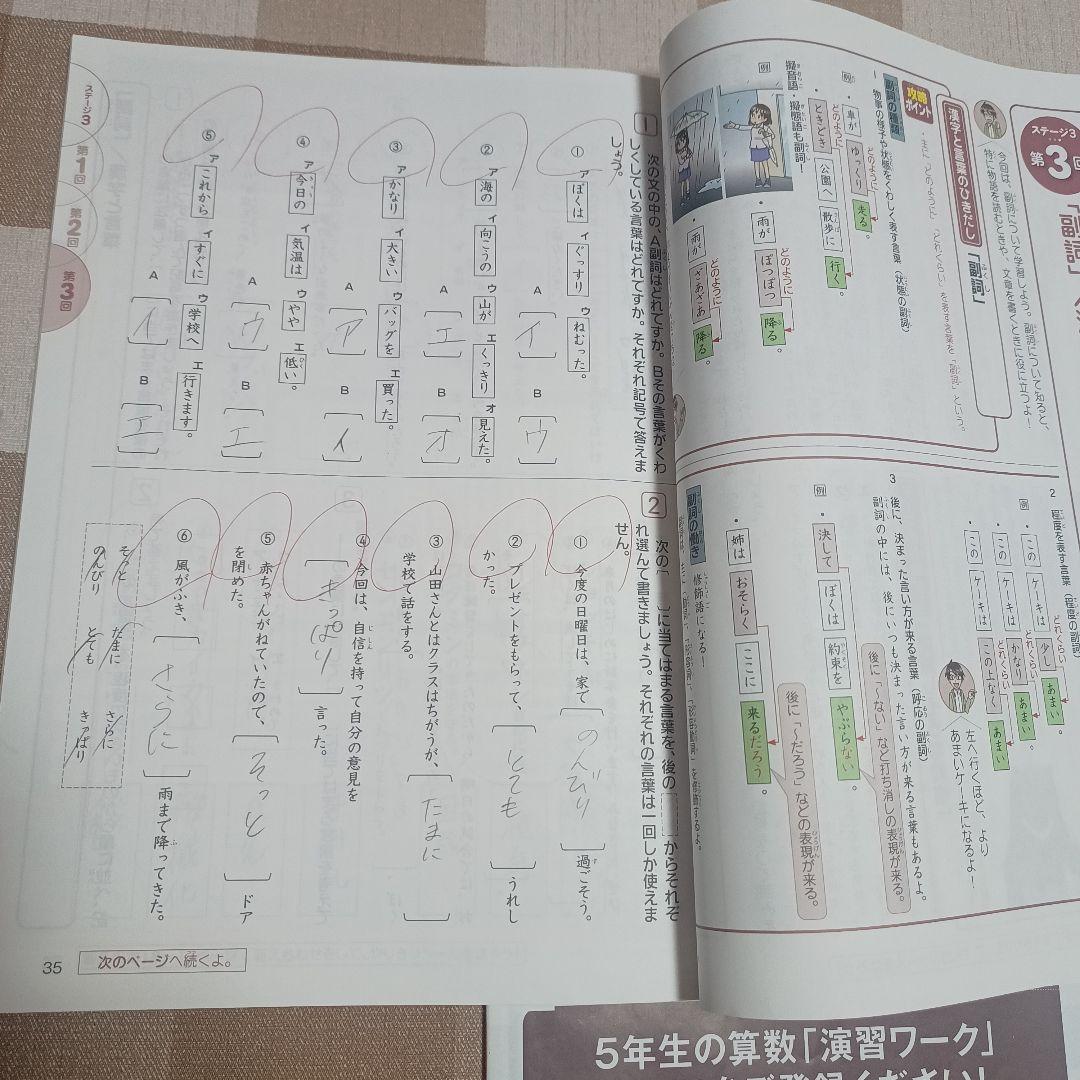 ステージ3
第3回
「副詞」
今回は、副詞について学習しよう。副詞について知ると、
特に物語を読むときや、文章を書くときに役に立つよ！
漢字と言葉のひきだし
「副詞」
攻略ポイント
主に「どのように」「どれくらい」を表す言葉を「副詞」という。
副詞の種類
1 物事の様子や状態をくわしく表す言葉（状態の副詞）
どのように
例・車が ゆっくり 走る。
どのように
・ときどき 公園へ 散歩に 行く。
擬音語・擬態語も副詞！
どのように
例・雨が ぽつぽつ 降る。
どのように
・雨が ざあざあ 降る。
2 程度を表す言葉（程度の副詞）
どれくらい
例・この ケーキは 少し あまい。
どれくらい
・この ケーキは かなり あまい。
どれくらい
・この ケーキは この上なく あまい。
左へ行くほど、より
あまいケーキになるよ！
3 後に、決まった言い方が来る言葉（呼応の副詞）
副詞の中には、後にいつも決まった言い方が来る言葉もあるよ。
後に「～ない」など打ち消しの表現が来る。
例・決して ぼくは 約束を やぶらない。
後に「～だろう」などの表現が来る。
・姉は おそらく ここに 来るだろう。
副詞の働き
修飾語になる！
1 次の文の中の、A副詞はどれですか。Bその言葉がくわ
しくしている言葉はどれですか。それぞれ記号で答えま
しょう。
① アぼくは イぐっすり ウねむった。
A［イ］ B［ウ］
② ア海の イ向こうの ウ山が エくっきり オ見えた。
A［エ］ B［オ］
③ アかなり イ大きい ウバッグを エ買った。
A［ア］ B［イ］
④ ア今日の イ気温は ウやや エ低い。
A［ウ］ B［エ］
⑤ アこれから イすぐに ウ学校へ エ行きます。
A［イ］ B［エ］
2 次の［ ］に当てはまる言葉を、後の からそれぞ
れ選んで書きましょう。それぞれの言葉は一回しか使えま
せん。
① 今度の日曜日は、家で［のんびり］過ごそう。
② プレゼントをもらって、［とても］うれし
かった。
③ 山田さんとはクラスはちがうが、［たまに］
学校で話をする。
④ 今回は、自信を持って自分の意見を
［きっぱり］言った。
⑤ 赤ちゃんがねていたので、［そっと］ドア
を閉めた。
⑥ 風がふき、［さらに］雨まで降ってきた。
そっと たまに さらに
のんびり とても きっぱり
ステージ3
第1回
第2回
第3回
35
次のページへ続くよ。
5年生の算数「演習ワーク」